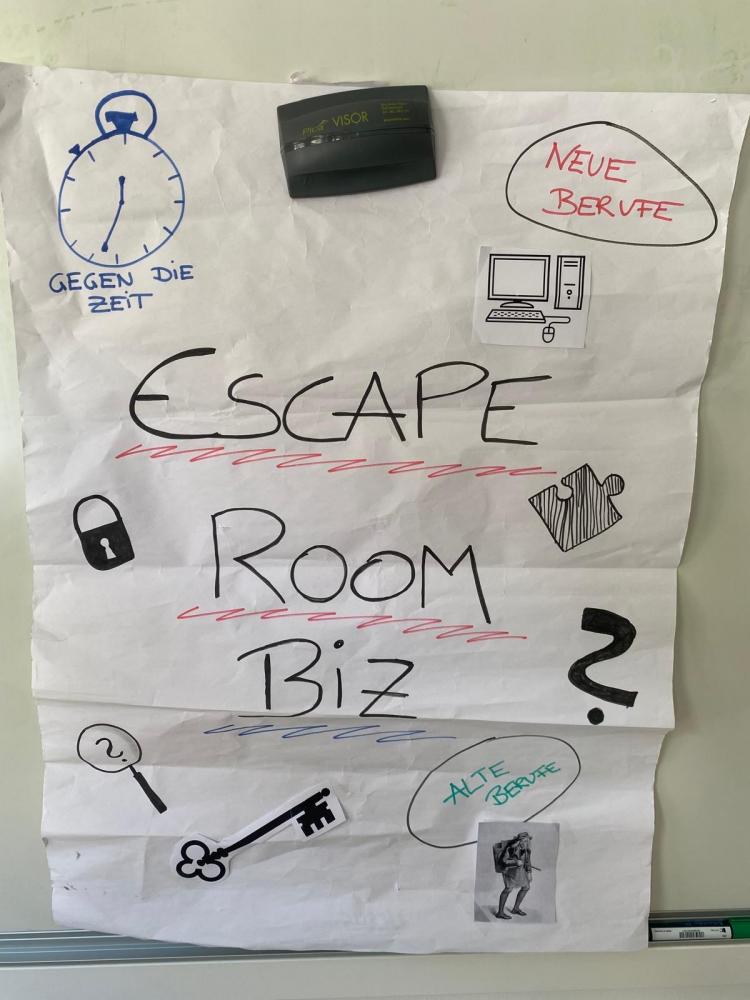 Pica VISOR
NEUE
BERUFE
GEGEN DIE
ZEIT
ESCAPE
ROOM
BIZ
?
?
ALTE
BERUFE